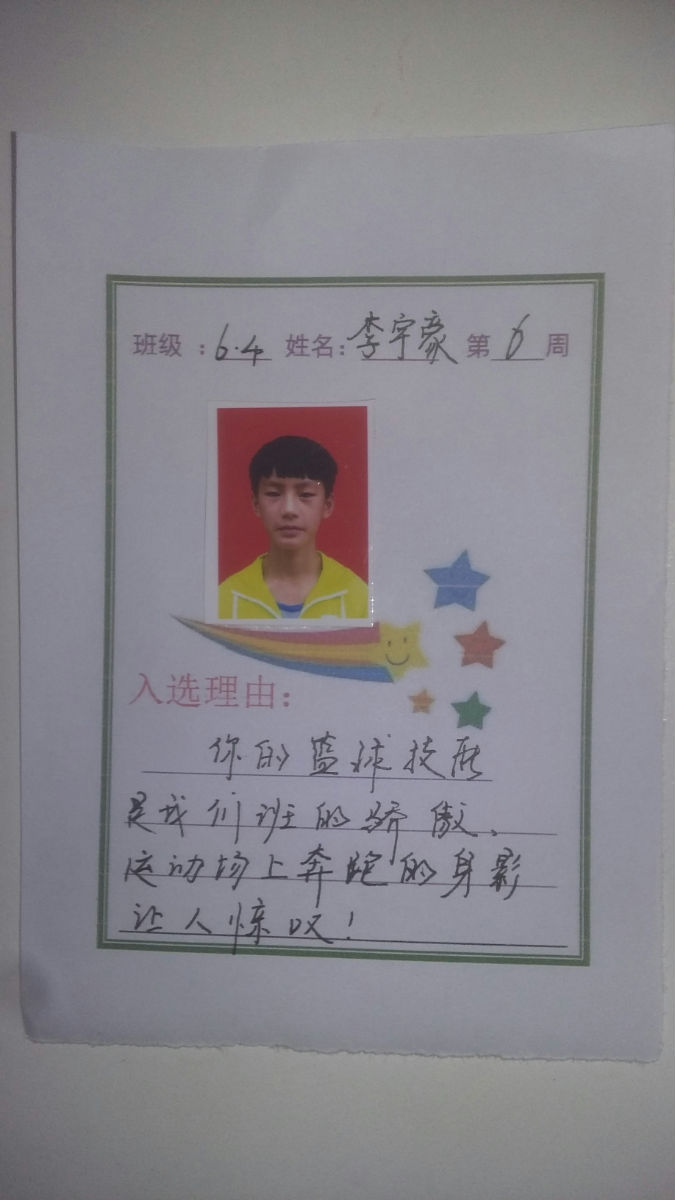 班级：6.4 姓名：李宇豪 第6周
入选理由：
你的篮球技能
是我们班的骄傲、
运动场上奔跑的身影
让人惊叹！